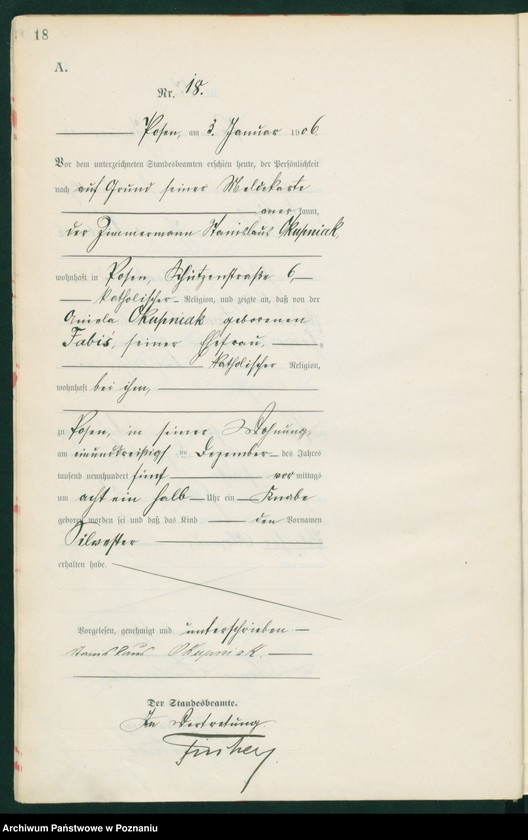 18
A.
Nr. 18.
Posen, am 3. Januar 1906.
Vor dem unterzeichneten Standesbeamten erschien heute, der Persönlichkeit
nach auf Grund seiner Meldekarte
aner kannt,
der Zimmermann Stanislaus Okupniak
wohnhaft in Posen, Schützenstraße 6,
katholischer Religion, und zeigte an, daß von der
Aniela Okupniak geborenen
Fabis, seiner Ehefrau,
katholischer Religion,
wohnhaft bei ihm,
zu Posen, in seiner Wohnung,
am einunddreißigsten Dezember des Jahres
tausend neunhundert fünf vor mittags
um acht ein halb Uhr ein Knabe
geboren worden sei und daß das Kind den Vornamen
Silvester
erhalten habe.
Vorgelesen, genehmigt und unterschrieben
Stanislaus Okupniak.
Der Standesbeamte.
In Vertretung
Archiwum Państwowe w Poznaniu